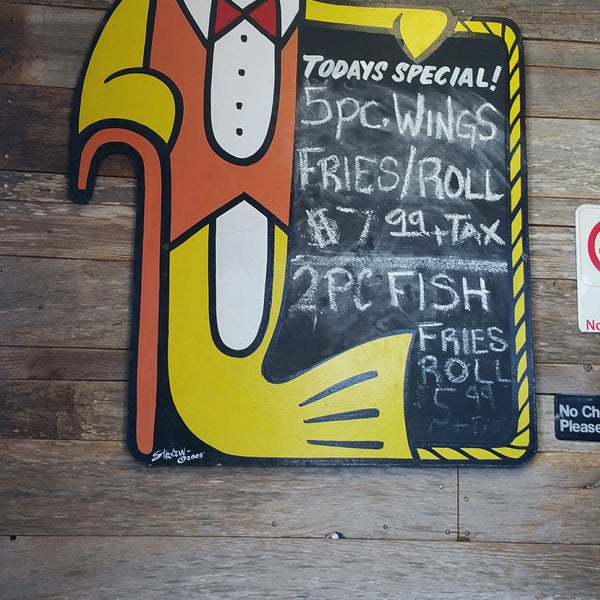 TODAYS SPECIAL!
5PC. WINGS
FRIES/ROLL
$7.99 + TAX
2PC FISH
FRIES
ROLL
$5.99
+ TAX
©2005
No
No Ch
Please